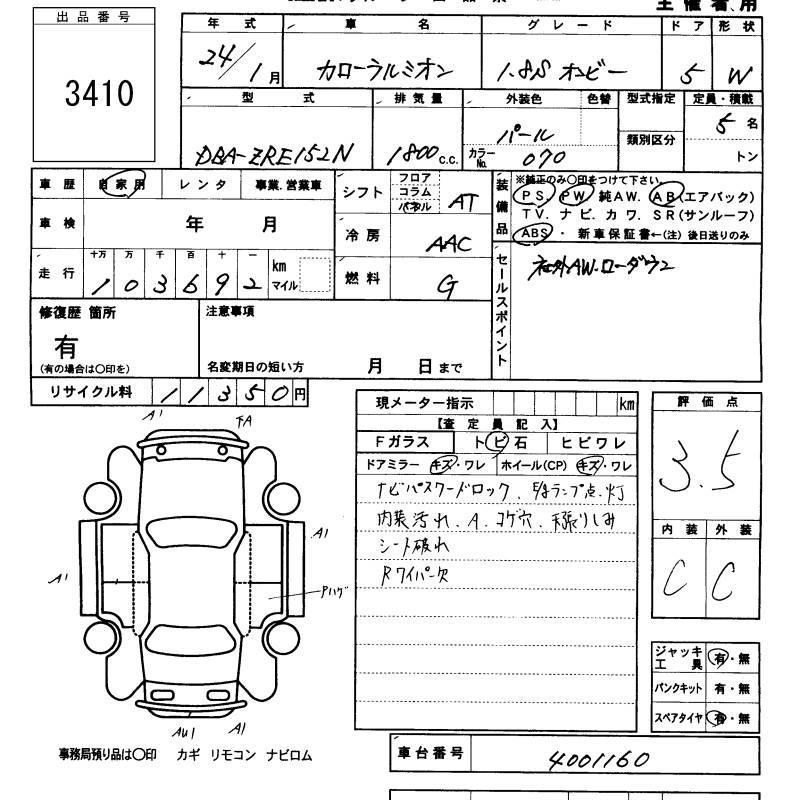 主催者用
出品番号
3410
年式
24/1月
車名
カローラルミオン
グレード
1.8S オンビー
ドア
5
形状
W
型式
DBA-ZRE152N
排気量
1800 c.c.
外装色 色替
パール
カラーNo.
070
型式指定
類別区分
定員・積載
5名
トン
車歴 自家用 レンタ 事業.営業車
車検 年 月
走行 十万 万 千 百 十 一
1 0 3 6 9 2
km
マイル
シフト フロア コラム パネル AT
冷房 AAC
燃料 G
装備品
※純正のみ〇印をつけて下さい。
PS. PW 純AW. AB(エアバック)
TV. ナビ. カワ. SR(サンルーフ)
ABS ・ 新車保証書←(注) 後日送りのみ
セールスポイント
社外AW.ローダウン
修復歴 箇所
有
(有の場合は〇印を)
注意事項
名変期日の短い方 月 日まで
リサイクル料 11350円
A1 下A
A1
A1
Pハゲ
AU1 A1
事務局預り品は〇印 カギ リモコン ナビロム
現メーター指示 km
【査定員記入】
Fガラス トビ石 ヒビワレ
ドアミラー キズ・ワレ ホイール(CP) キズ・ワレ
ナビパスワードロック、 ランプ点灯
内装汚れ、A、コゲ穴、天張りしみ
シート破れ
Rワイパー欠
評価点
3.5
内装 外装
C C
ジャッキ工具 有・無
パンクキット 有・無
スペアタイヤ 有・無
車台番号
4001160